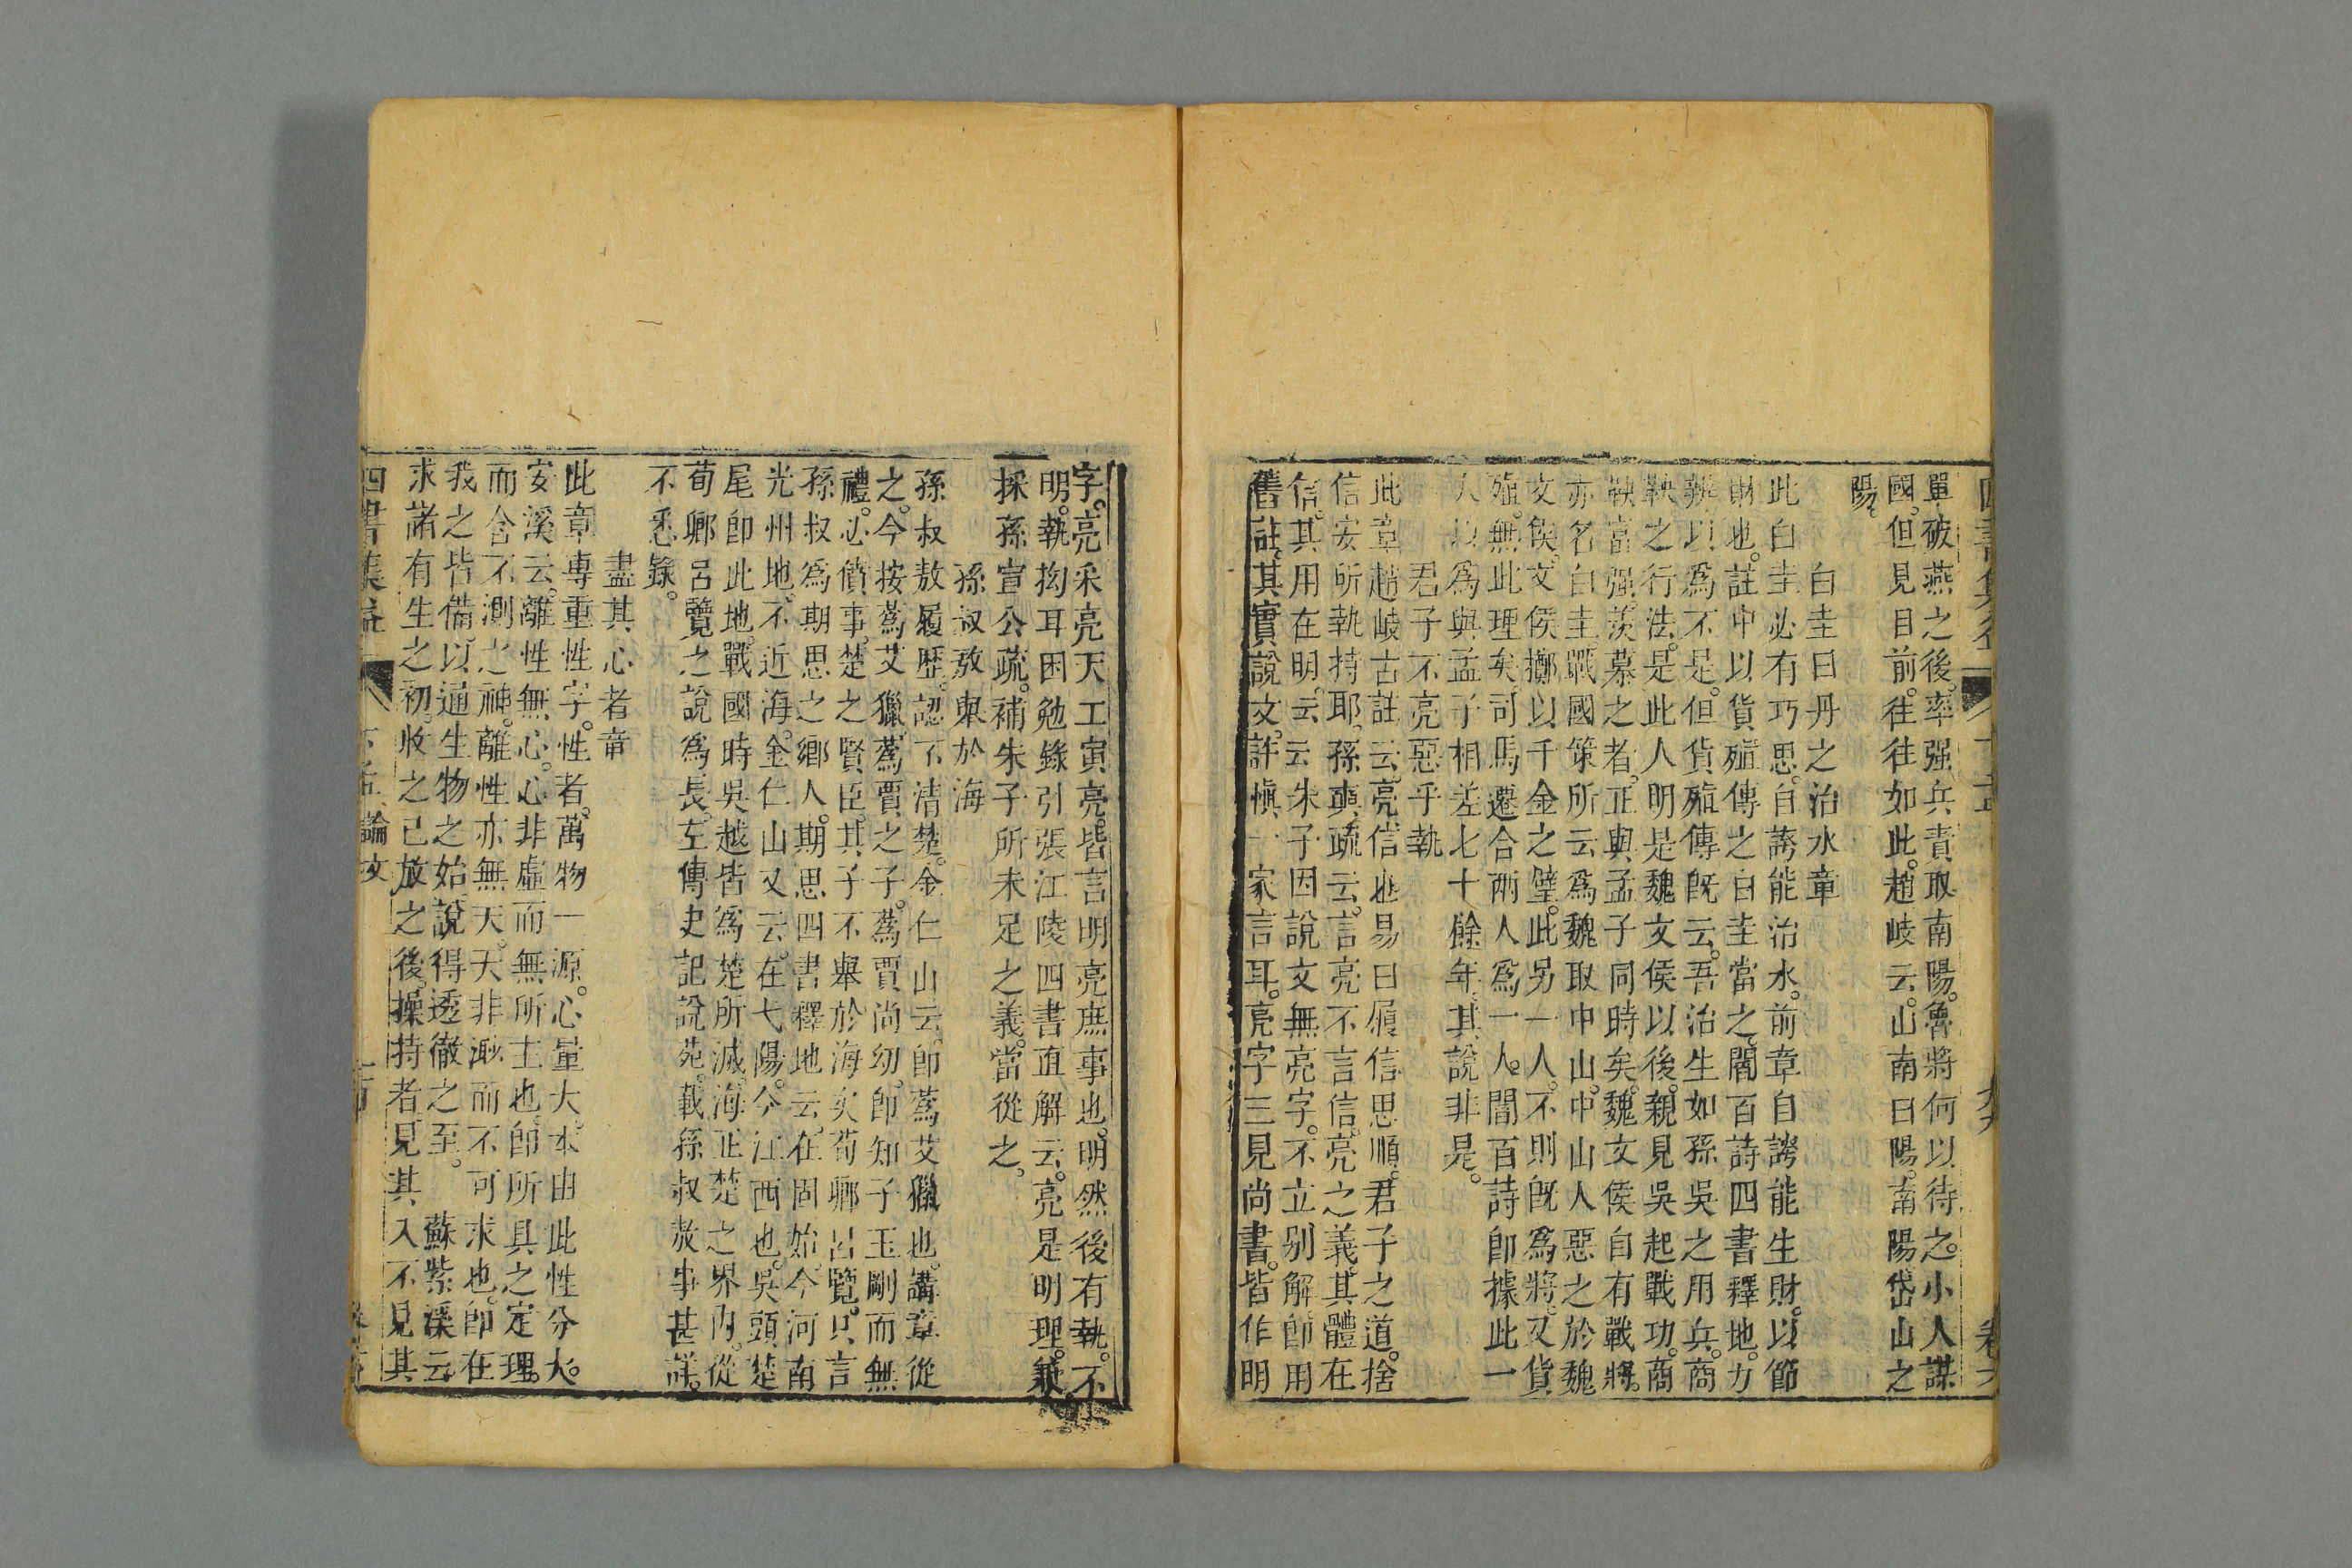 單破燕之後。率强兵責取南陽。魯將何以待之。小人謀
國。但見目前。往往如此。趙岐云。山南曰陽。南陽岱山之
陽。
白圭曰丹之治水章
此白圭必有巧思。自誇能治水。前章自誇能生財。以節
財也。註中以貨殖傳之白圭當之。閻百詩四書釋地。力
辨以爲不是。但貨殖傳旣云。吾治生如孫吳之用兵。商
鞅之行法。是此人明是魏文侯以後。親見吳起戰功。商
鞅富强。羡慕之者。正與孟子同時矣。魏文侯自有戰將。
亦名白圭。戰國策所云爲魏取中山。中山人惡之於魏
文侯。文侯擲以千金之璧。此另一人。不則旣爲將。又貨
殖。無此理矣。司馬遷合兩人爲一人。閻百詩卽據此一
人以爲與孟子相差七十餘年。其說非是。
君子不亮惡乎執
此章趙岐古註云。亮信也。易曰履信思順。君子之道。捨
信安所執持耶。孫奭疏云。言亮不言信。亮之義。其體在
信。其用在明。云云朱子因說文無亮字。不立别解。卽用
舊註。其實說文。許愼一家言耳。亮字三見尚書。皆作明
字。亮采亮天工寅亮。皆言明亮庶事也。明然後有執。不
明。執拗耳。困勉錄引張江陵四書直解云。亮是明理。兼
採孫宣公疏。補朱子所未足之義。當從之。
孫叔敖舉於海
孫叔敖履歷。認不清楚。金仁山云。卽蔿艾獵也。講章從
之。今按蔿艾獵。蔿賈之子。蔿賈尚幼。卽知子玉剛而無
禮。必僨事。楚之賢臣。其子不舉於海矣。荀鄕呂覽。只言
孫叔爲期思之鄕人。期思四書釋地云。在固始。今河南
光州地。不近海。金仁山又云。在弋陽。今江西也。吳頭楚
尾卽此地。戰國時吳越皆爲楚所滅。海正楚之界內。從
荀鄕呂覽之說爲長。左傳史記說苑。載孫叔敖事甚詳。
不悉錄。
盡其心者章
此章專重性字。性者。萬物一源。心量大。本由此性分大。
安溪云。離性無心。心非虛而無所主也。卽所具之定理。
而含不測之神。離性亦無天。天非渺而不可求也。卽在
我之皆備以通生物之始。說得透徹之至。蘇紫溪云
求諸有生之初。收之已放之後。操持者見其入不見其
四書集益 下孟論文